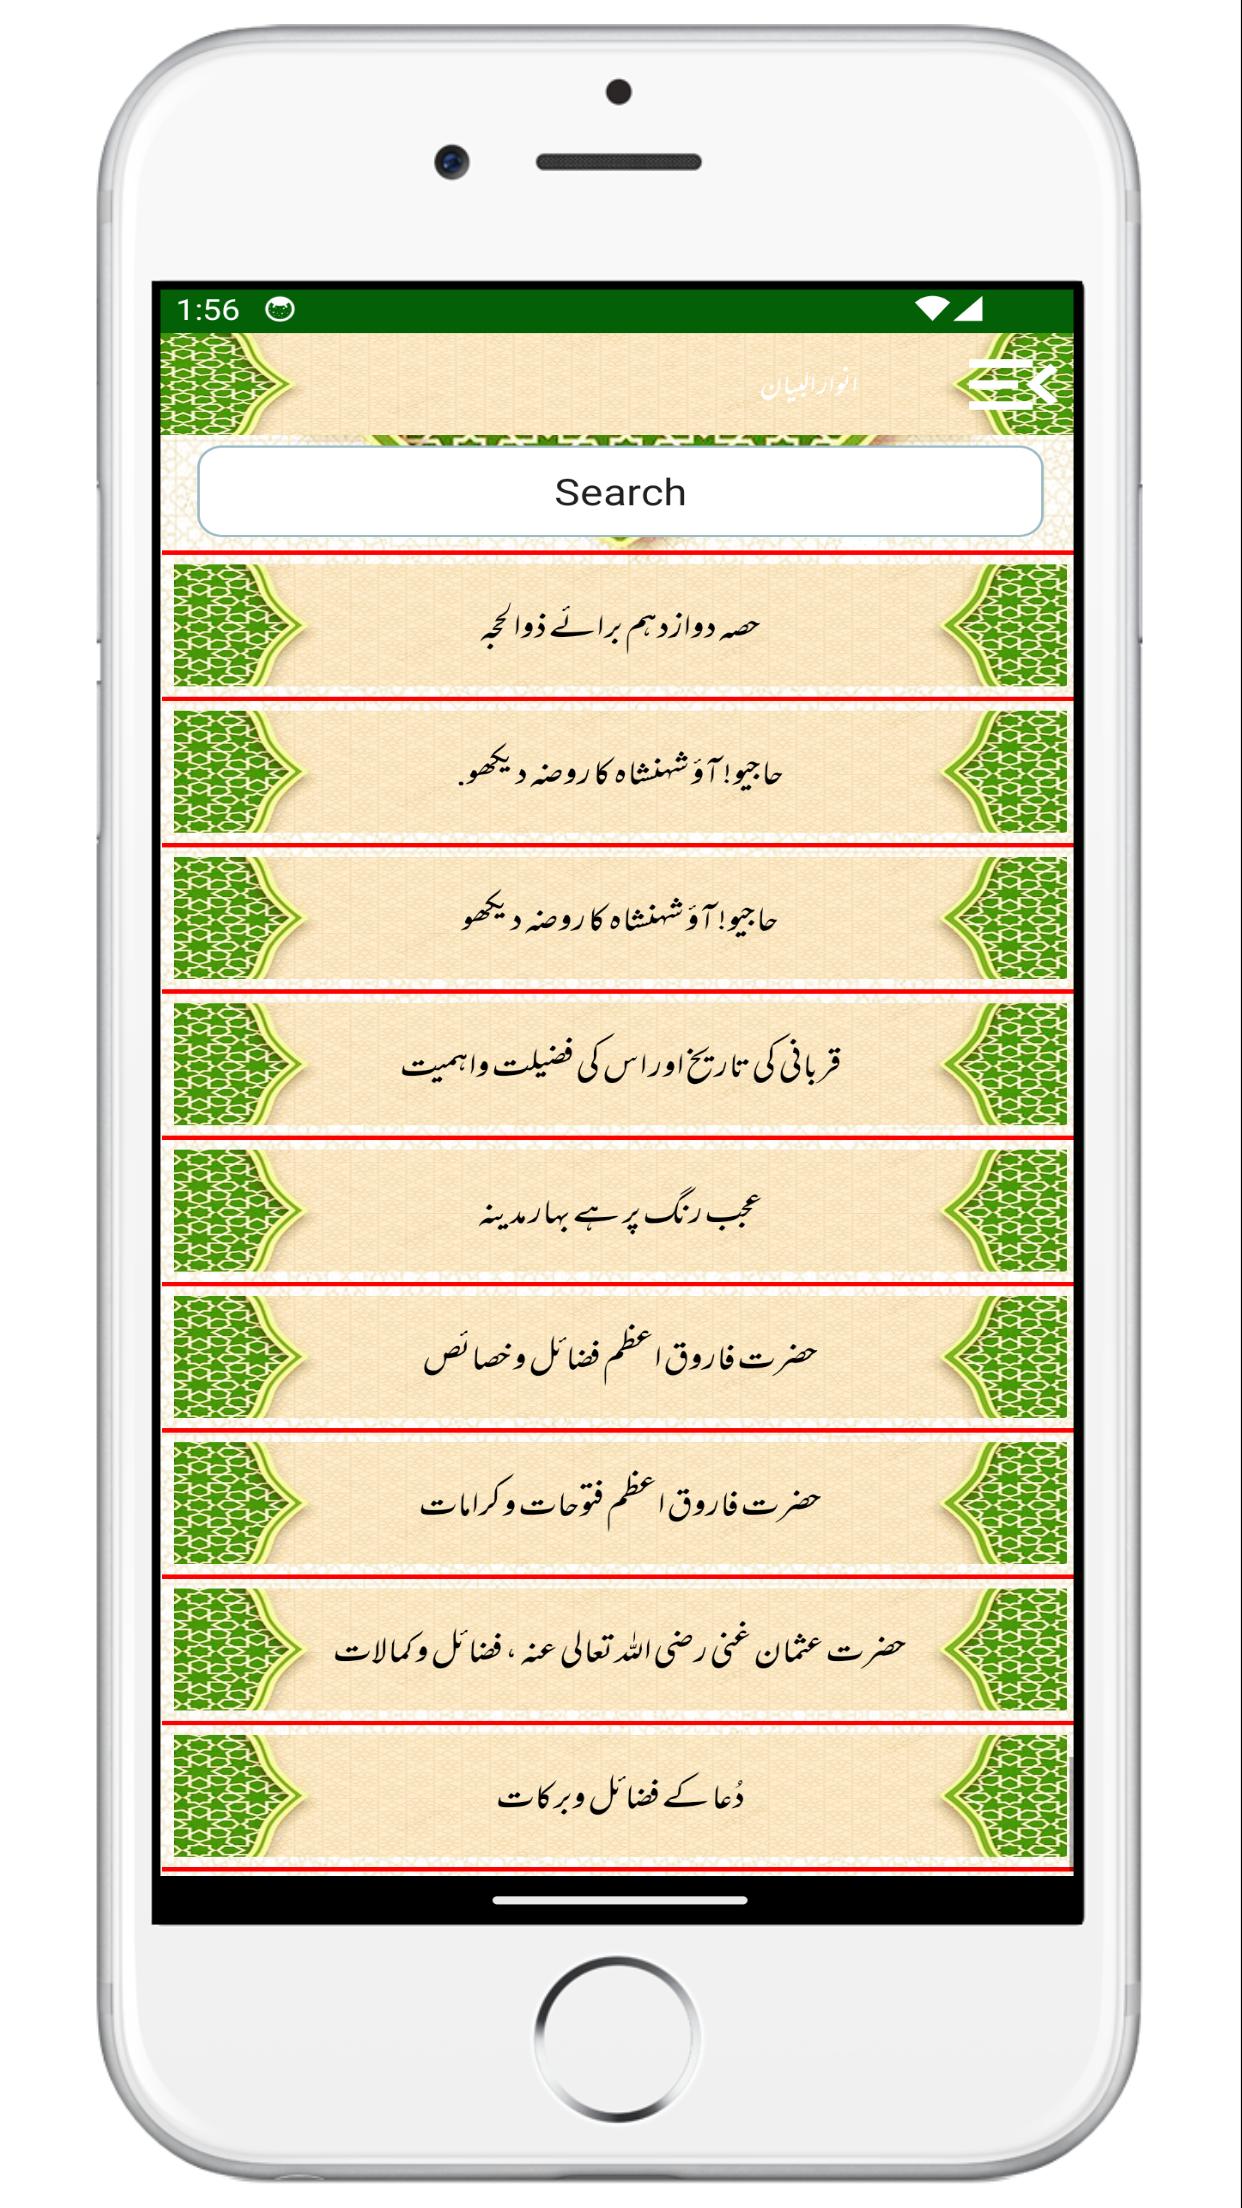 1:56
انوار البیان
Search
حصہ دوازدہم برائے ذوالحجہ
حاجیو! آؤ شہنشاہ کا روضہ دیکھو.
حاجیو! آؤ شہنشاہ کا روضہ دیکھو
قربانی کی تاریخ اور اس کی فضیلت و اہمیت
عجب رنگ پر ہے بہار مدینہ
حضرت فاروق اعظم فضائل و خصائص
حضرت فاروق اعظم فتوحات و کرامات
حضرت عثمان غنی رضی اللہ تعالی عنہ ، فضائل و کمالات
دُعا کے فضائل و برکات